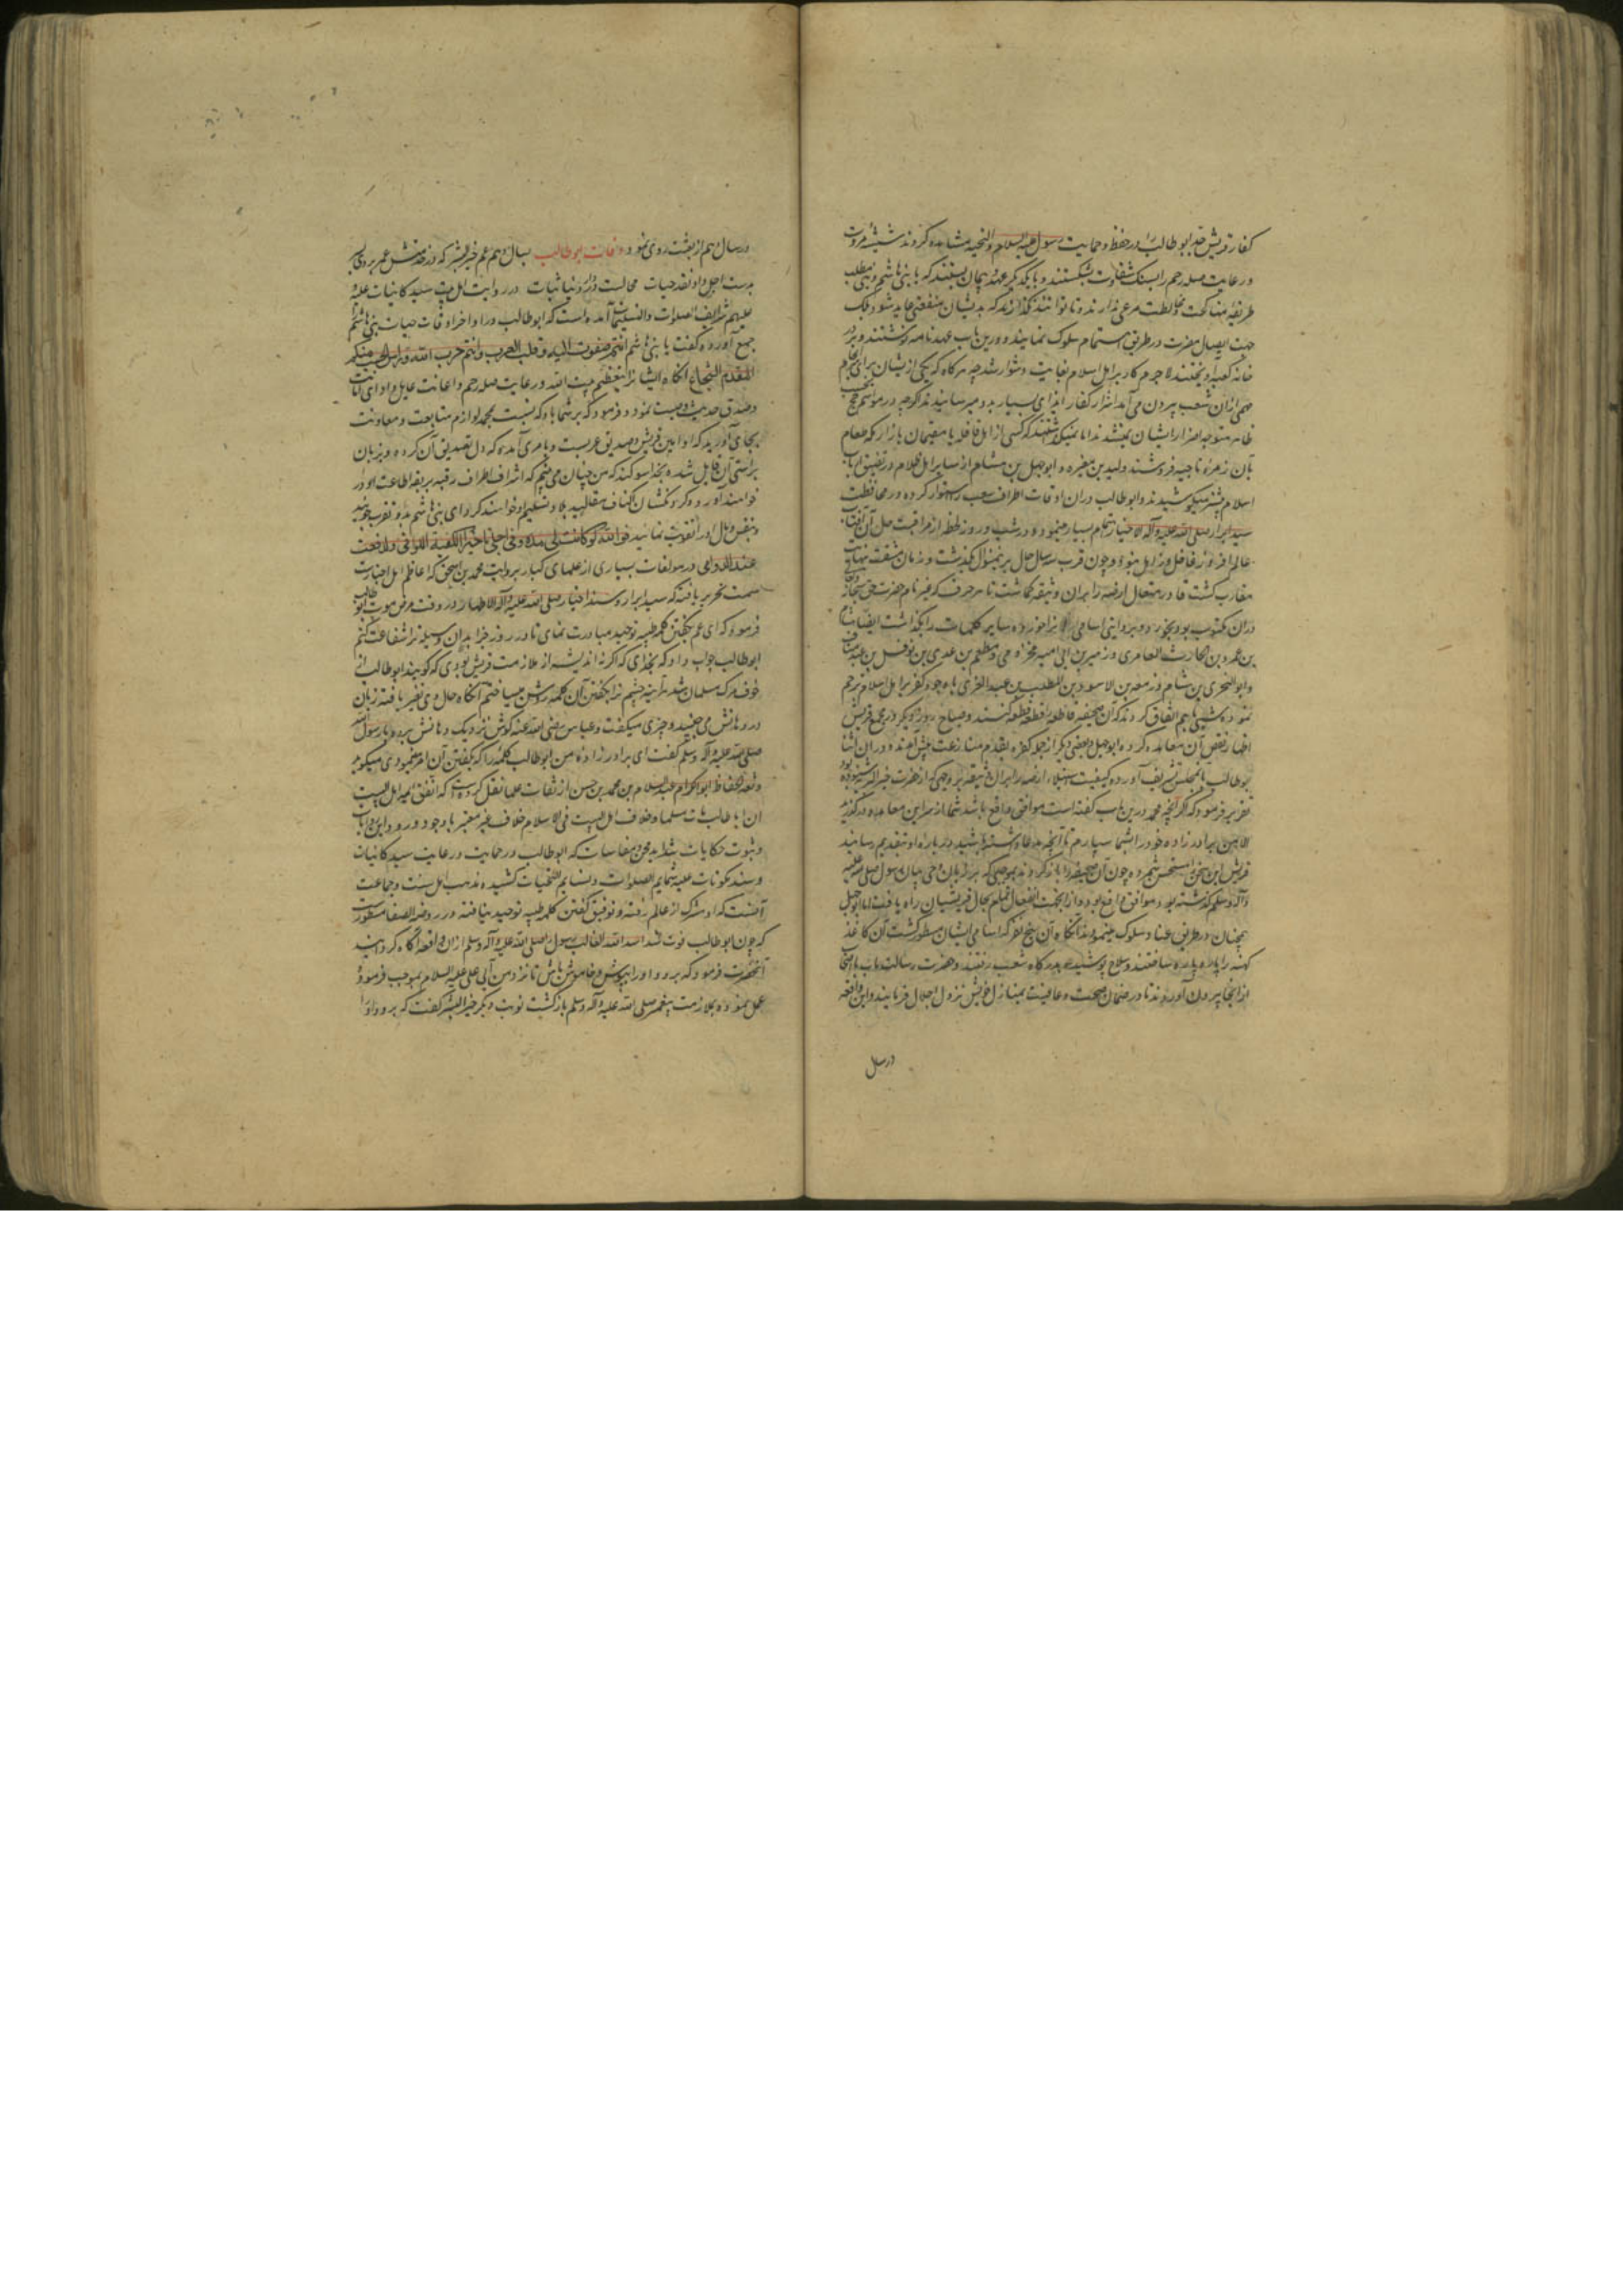 کفار قریش جد ابو طالب را در حفظ و حمایت رسول علیه السلام و التحیه مشاهده کردند شیشه مروت
و رعایت صله رحم را بسنگ شقاوت بشکستند و با یکدیگر عهد و پیمان بستند که با بنی هاشم و بنی مطلب
طریقه مناکحت و مخالطت مرعی ندارند و تا توانند نگذارند که بدیشان منفعتی عاید شود بلک
جهت ایصال مضرت در طریق ستم سلوک نمایند و درین باب عهد نامه نوشتند و بر در
خانه کعبه آویختند لاجرم کار بر اهل اسلام بغایت دشوار شد چه هرگاه که یکی ازیشان برای انجام
مهمی ازان شعب بیرون می آمد اشرار کفار ایذای بسیار بدو میرسانیدند اگرچه در موسم حج بحسب
ظاهر متوجه اضرار ایشان نمیشدند اما نمیگذاشتند که کسی از اهل قافله یا مقیمان بازار مکه طعام
بآن زمره ناجیه فروشند و ولید بن مغیره و ابو جهل بن هشام از سایر اهل ظلام در تضییق ارباب
اسلام بیشتر میکوشیدند و ابو طالب دران اوقات اطراف شعب را استوار کرده در محافظت
سید ابرار صلی الله علیه و آله الاخیار اهتمام بسیار مینمود و در شب و روز لحظه از مراقبت حال آن آفتاب
عالم افروز غافل و زاهل نبود و چون قرب سه سال حال برینمنوال بگذشت و زمان مشقت نهایت
مقارب گشت قادر متعال ارضه را بران وثیقه گماشت تا هر حرف که غیر نام حضرت حق سبحانه و تعالی
دران مکتوب بود بخورد و بروایتی اسامی الله را نخورده سایر کلمات را بگذاشت ایضا هشام
بن عمرو بن الحارث العامری و زهیر بن ابی امیه مخزومی و مطعم بن عدی بن نوفل بن عبد مناف
و ابو البختری بن هشام و زمعه بن الاسود بن المطلب بن عبد العزی با وجود کفر بر اهل اسلام ترحم
نموده شبی با هم اتفاق کردند که آن صحیفه قاطعه را قطعه قطعه کنند و صباح روز دیگر در مجمع قریش
اظهار نقض آن معاهده کرده ابو جهل و بعضی دیگر از جمله کفره بقدم منازعت پیش آمدند و دران اثنا
ابو طالب بآنمجلس تشریف آورده کیفیت استیلاء ارضه را بران وثیقه بر وجهی که از حضرت خیر البریه شنیده بود
تقریر فرمود که اگر آنچه محمد درین باب گفته است موافق واقع باشد شما از سر این معاهده درگذرید
الا من برادر زاده خود را بشما سپارم تا آنچه مدعا داشته باشید در باره او بتقدیم رسانید
قریش این سخن را مستحسن شمرده چون آن صحیفه را باز کردند بموجبی که بر زبان وحی بیان رسول صلی الله علیه
و آله و سلم گذشته بود موافق واقع بود و از اینجهت انفعال تمام بحال قریشیان راه یافت اما ابو جهل
همچنان در طریق عناد سلوک مینمود بعد آنگاه آن پنج نفر که اسامی ایشان مسطور گشت آن کاغذ
کهنه را پاره پاره ساختند و سلاح پوشیده بدرگاه شعب رفتند و حضرت رسالت مآب را با اصحاب
از انجا بیرون آوردند تا در ضمان صحت و عافیت بمنازل خویش نزول اجلال فرمایند و این واقعه
در سال
در سال دهم از بعثت روی نمود وفات ابو طالب بسال دهم عم خیر البشر که در خدمتش عمر بردی بسر
بدست اجل داد نقد حیات محالست در دار دنیا ثبات در روایت اهل بیت سید کاینات علیه و
علیهم شرایف الصلوات و التسلیمات آمده است که ابو طالب در اواخر اوقات حیات بنی هاشم را
جمع آورده گفت یا بنی هاشم انتم صفوت الله و قلب العرب و انتم حزب الله
المقدم الشجاع آنگاه ایشانرا بتعظیم بیت الله و رعایت صله رحم و اعانت عایل و ادای امانت
و صدق حدیث وصیت نمود و فرمود که بر شما باد که نسبت بمحمد لوازم متابعت و معاونت
بجای آورید که او امین قریش و صدیق عربست و بامری آمده که دل تصدیق آن کرده و بزبان
براستی آن قایل شده بخدا سوگند که من چنان می بینم که اشراف اطراف رقبه بربقه اطاعت او در
خواهند آورد
و بنفس و مال او را تقویت نمایید فوالله لو کانت لی مدة و فی اجلی تاخیر لکفیته الکوافی و لدفعت
عنه الدواهی در مولفات بسیاری از علمای کبار بروایت محمد بن اسحق که اعاظم اهل اخبارست
سمت تحریر یافته که سید ابرار و سند اخیار صلی الله علیه و آله الاطهار در وقت مرض موت ابو طالب
فرمود که ای عم بگفتن کلمه طیبه توحید مبادرت نمای تا در روز جزا بدان وسیله ترا شفاعت کنم
ابو طالب جواب داد که بخدای که اگر نه اندیشه از ملازمت قریش بودی که گویند ابو طالب از
خوف مرگ مسلمان شد هر آینه چشم ترا بگفتن آن کلمه روشن میساختم آنگاه حال وی تغییر یافته زبان
در دهانش می جنبید و چیزی میگفت و عباس رضی الله عنه گوش نزدیک دهانش برده با رسول الله
صلی الله علیه و آله و سلم گفت ای برادر زاده من ابو طالب کلمه را که بگفتن آن امر میفرمودی میگوید
و ثقه الحفاظ ابو المکرام عبد السلام بن محمد بن حسن از ثقات علما نقل کرده است که اتفق ائمه اهل البیت
ان ابا طالب مات مسلما و خلاف اهل البیت فی الاسلام خلاف غیر معتبر با وجود ورود این روایات
و ثبوت حکایات شداید محن و مقاسات که ابو طالب در حمایت و رعایت سید کاینات
و سند مکونات علیه شمایم الصلوات و نسایم التحیات کشیده مذهب اهل سنت و جماعت
آنست که او مشرک از عالم رفته و توفیق گفتن کلمه طیبه توحید نیافته و در روضه الصفا مسطورست
که چون ابو طالب فوت شد اسد الله الغالب رسول را صلی الله علیه و آله و سلم ازان واقعه آگاه گردانید
آنحضرت فرمود که برو و او را بپوش و خاموش باش تا نزد من آیی علی علیه السلام بموجب فرموده
عمل نموده بملازمت پیغمبر صلی الله علیه و آله و سلم بازگشت نوبت دیگر خیر البشر گفت که برو و او را